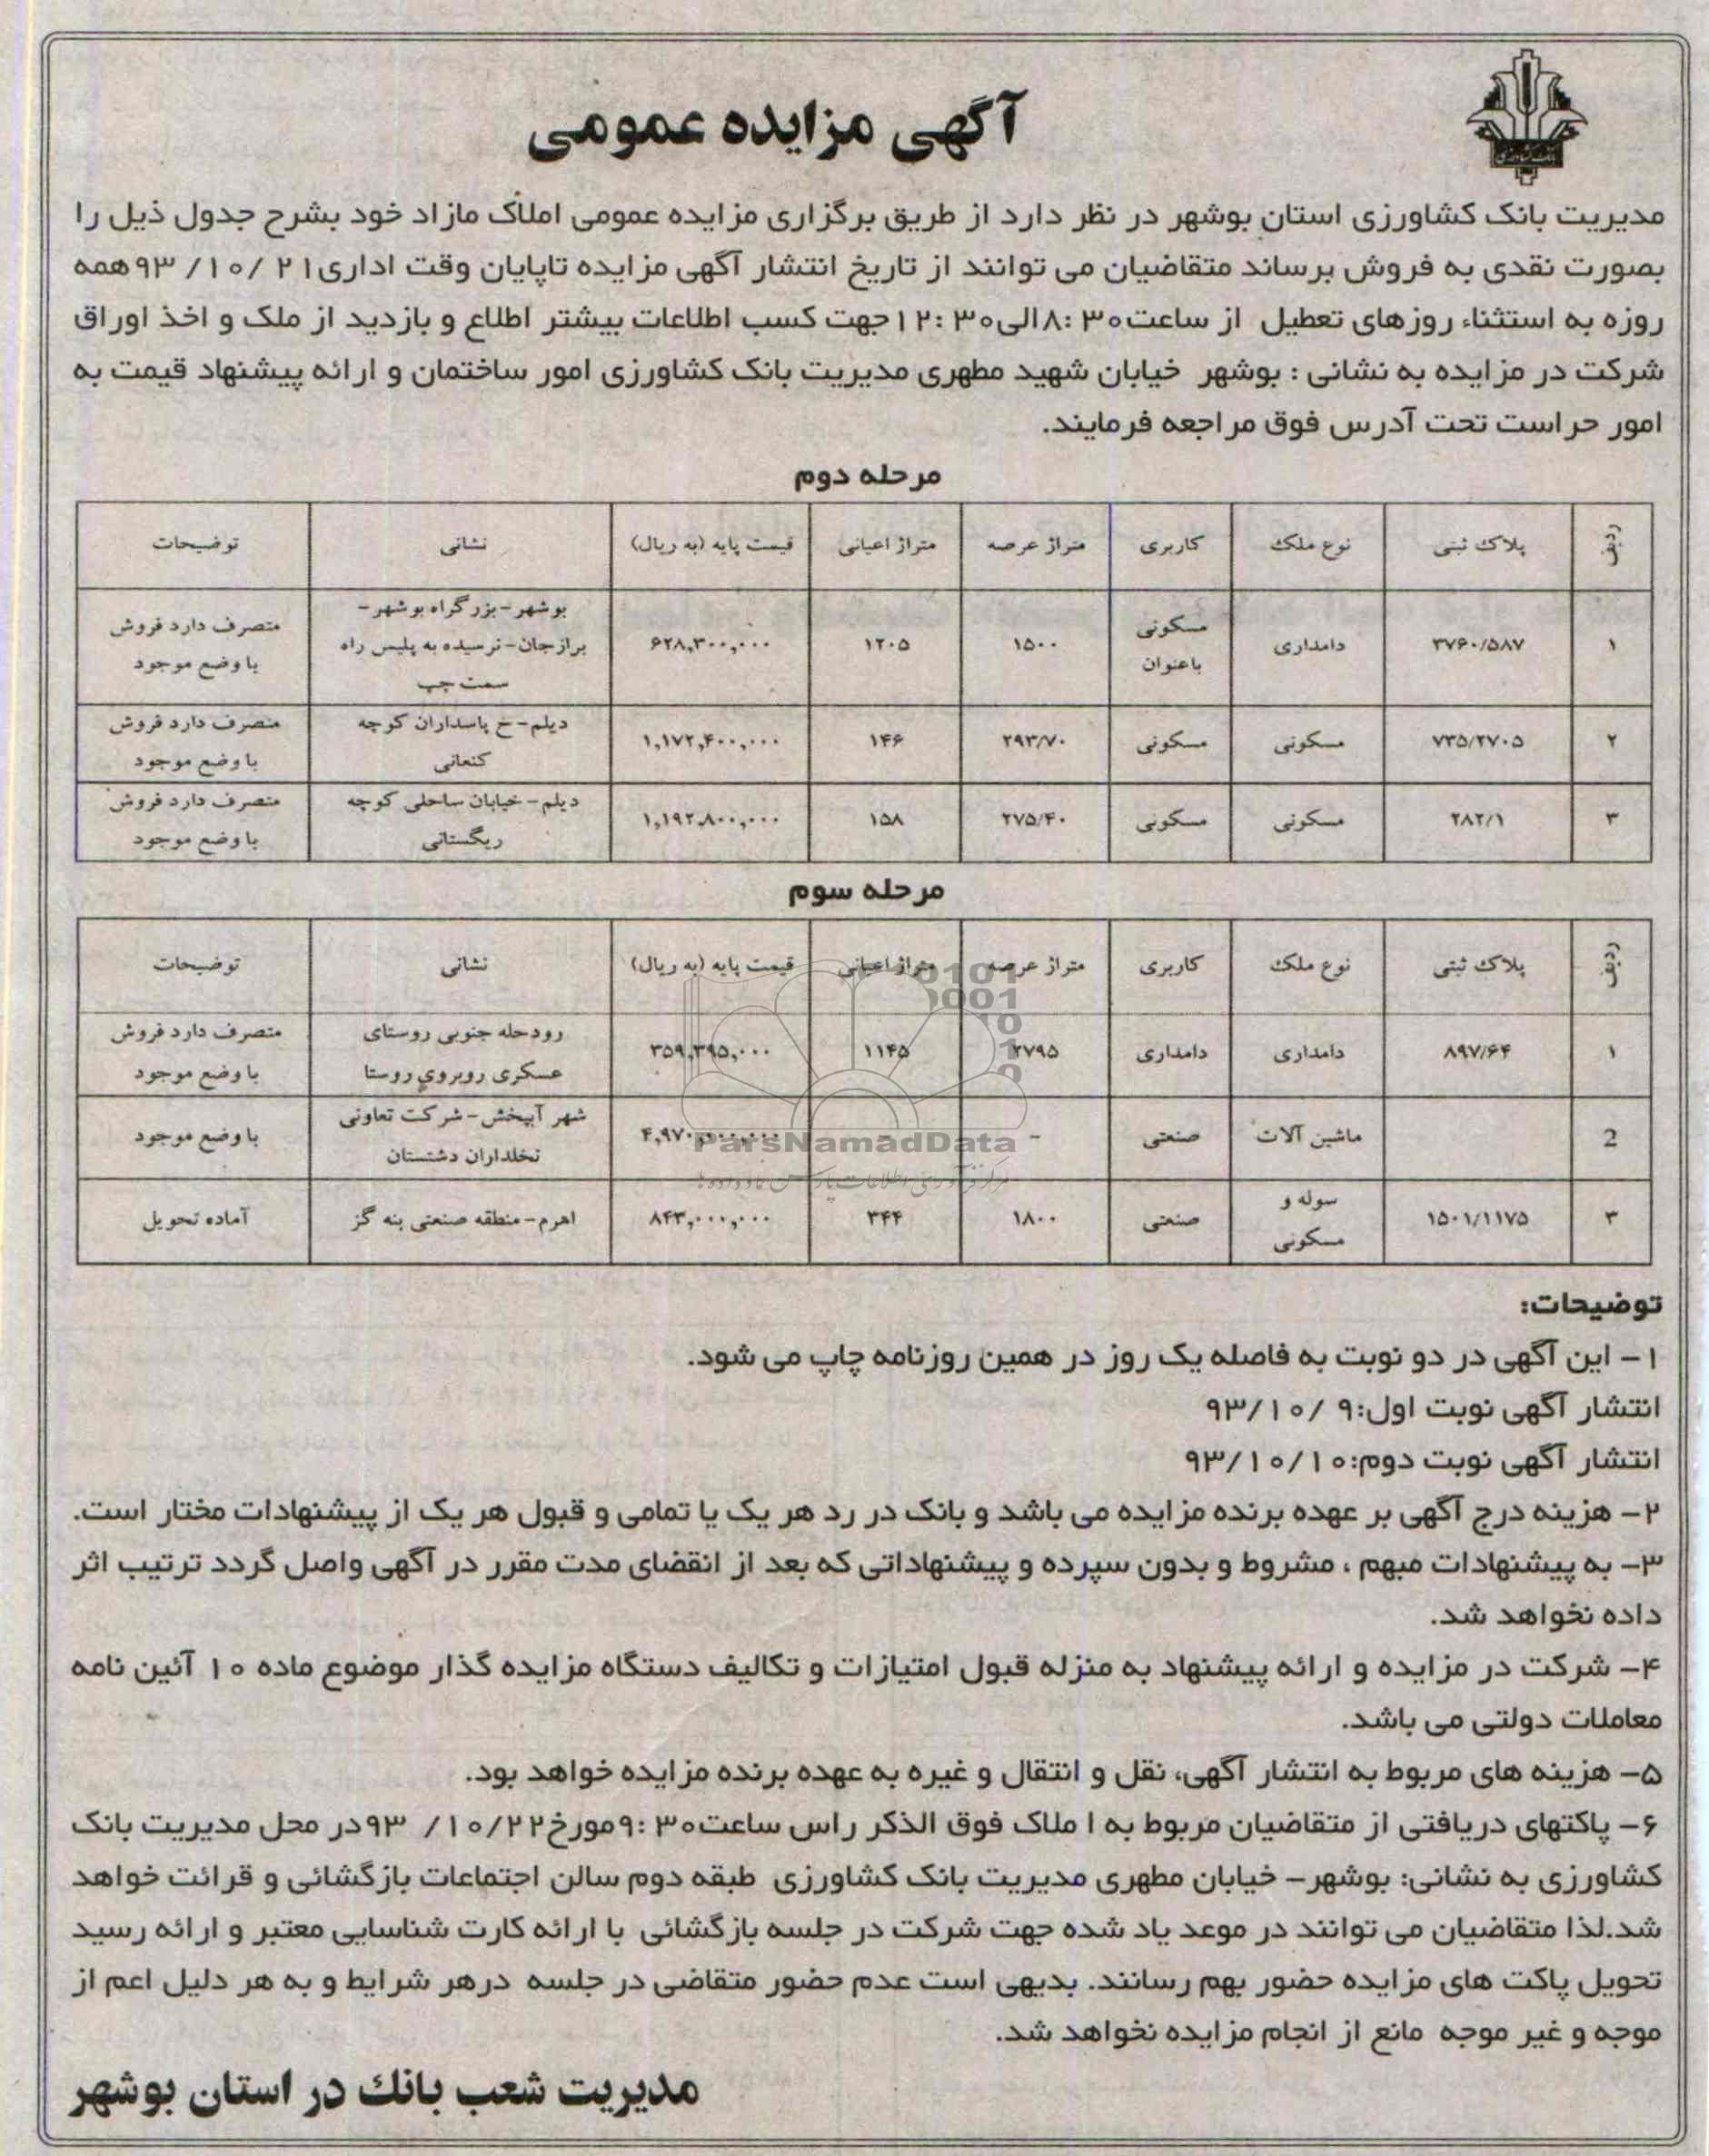 بانک کشاورزی
آگهی مزایده عمومی
مدیریت بانک کشاورزی استان بوشهر در نظر دارد از طریق برگزاری مزایده عمومی املاک مازاد خود بشرح جدول ذیل را
بصورت نقدی به فروش برساند متقاضیان می توانند از تاریخ انتشار آگهی مزایده تاپایان وقت اداری ۲۱ /۱۰ /۹۳ همه
روزه به استثناء روزهای تعطیل از ساعت ۸:۳۰ الی ۱۲:۳۰ جهت کسب اطلاعات بیشتر اطلاع و بازدید از ملک و اخذ اوراق
شرکت در مزایده به نشانی : بوشهر خیابان شهید مطهری مدیریت بانک کشاورزی امور ساختمان و ارائه پیشنهاد قیمت به
امور حراست تحت آدرس فوق مراجعه فرمایند.
مرحله دوم
ردیف پلاک ثبتی نوع ملک کاربری متراژ عرصه متراژ اعیانی قیمت پایه (به ریال) نشانی توضیحات
۱ ۳۷۶۰/۵۸۷ دامداری مسکونی باعنوان ۱۵۰۰ ۱۲۰۵ ۶۲۸,۳۰۰,۰۰۰ بوشهر-بزرگراه بوشهر-برازجان-نرسیده به پلیس راه سمت چپ متصرف دارد فروش با وضع موجود
۲ ۷۳۵/۲۷۰۵ مسکونی مسکونی ۲۹۳/۷۰ ۱۴۶ ۱,۱۷۲,۴۰۰,۰۰۰ دیلم-خ پاسداران کوچه کنعانی متصرف دارد فروش با وضع موجود
۳ ۲۸۲/۱ مسکونی مسکونی ۲۷۵/۴۰ ۱۵۸ ۱,۱۹۲,۸۰۰,۰۰۰ دیلم-خیابان ساحلی کوچه ریگستانی متصرف دارد فروش با وضع موجود
مرحله سوم
ردیف پلاک ثبتی نوع ملک کاربری متراژ عرصه متراژ اعیانی قیمت پایه (به ریال) نشانی توضیحات
۱ ۸۹۷/۶۴ دامداری دامداری ۲۷۹۵ ۱۱۴۵ ۳۵۹,۳۹۵,۰۰۰ رودحله جنوبی روستای عسکری روبروی روستا متصرف دارد فروش با وضع موجود
2 ماشین آلات صنعتی - - ۴,۹۷۰,۰۰۰,۰۰۰ شهر آبپخش-شرکت تعاونی نخلداران دشتستان با وضع موجود
۳ ۱۵۰۱/۱۱۷۵ سوله و مسکونی صنعتی ۱۸۰۰ ۳۴۴ ۸۴۳,۰۰۰,۰۰۰ اهرم-منطقه صنعتی بنه گز آماده تحویل
ParsNamadData
توضیحات:
۱- این آگهی در دو نوبت به فاصله یک روز در همین روزنامه چاپ می شود.
انتشار آگهی نوبت اول: ۹ /۹۳/۱۰
انتشار آگهی نوبت دوم: ۹۳/۱۰/۱۰
۲- هزینه درج آگهی بر عهده برنده مزایده می باشد و بانک در رد هر یک یا تمامی و قبول هر یک از پیشنهادات مختار است.
۳- به پیشنهادات مبهم ، مشروط و بدون سپرده و پیشنهاداتی که بعد از انقضای مدت مقرر در آگهی واصل گردد ترتیب اثر
داده نخواهد شد.
۴- شرکت در مزایده و ارائه پیشنهاد به منزله قبول امتیازات و تکالیف دستگاه مزایده گذار موضوع ماده ۱۰ آئین نامه
معاملات دولتی می باشد.
۵- هزینه های مربوط به انتشار آگهی، نقل و انتقال و غیره به عهده برنده مزایده خواهد بود.
۶- پاکتهای دریافتی از متقاضیان مربوط به ا ملاک فوق الذکر راس ساعت ۹:۳۰ مورخ ۲۲/ ۱۰/ ۹۳ در محل مدیریت بانک
کشاورزی به نشانی: بوشهر- خیابان مطهری مدیریت بانک کشاورزی طبقه دوم سالن اجتماعات بازگشائی و قرائت خواهد
شد.لذا متقاضیان می توانند در موعد یاد شده جهت شرکت در جلسه بازگشائی با ارائه کارت شناسایی معتبر و ارائه رسید
تحویل پاکت های مزایده حضور بهم رسانند. بدیهی است عدم حضور متقاضی در جلسه درهر شرایط و به هر دلیل اعم از
موجه و غیر موجه مانع از انجام مزایده نخواهد شد.
مدیریت شعب بانک در استان بوشهر